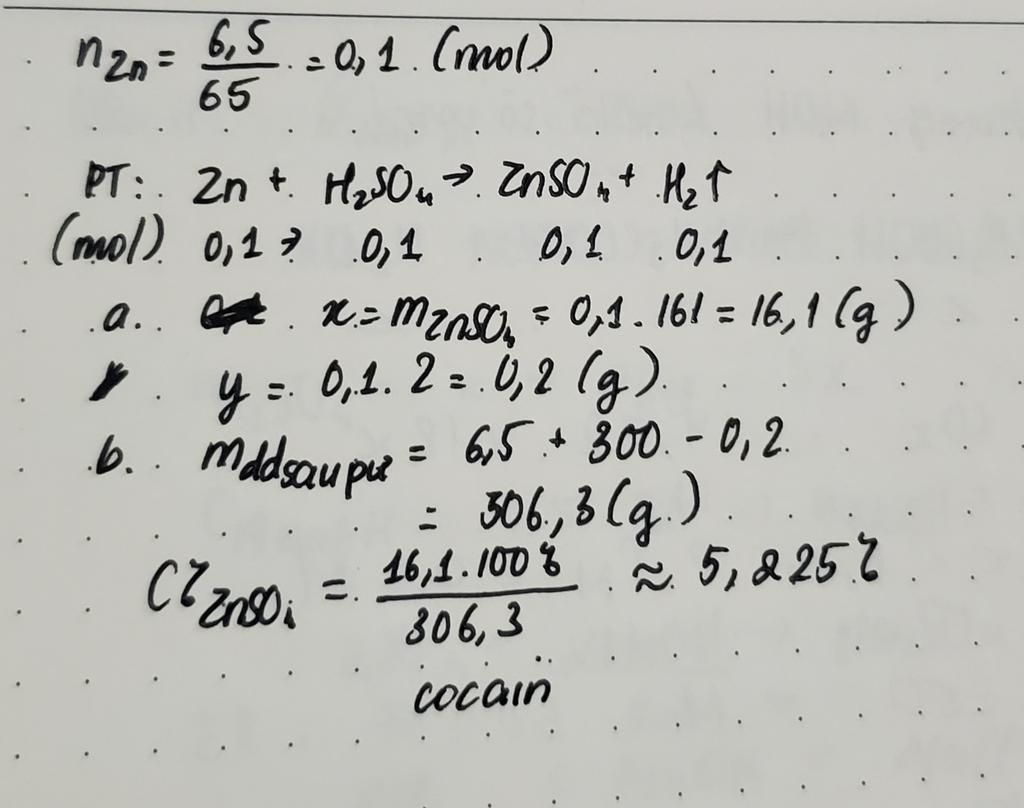 n Zn = 6,5 / 65 = 0,1 (mol)
PT: Zn + H₂SO₄ → ZnSO₄ + H₂↑
(mol) 0,1 → 0,1 0,1 0,1
a. x = m ZnSO₄ = 0,1 . 161 = 16,1 (g)
y = 0,1 . 2 = 0,2 (g)
b. m dd sau pư = 6,5 + 300 - 0,2
= 306,3 (g)
C% ZnSO₄ = 16,1 . 100% / 306,3 ≈ 5,225%
cocain